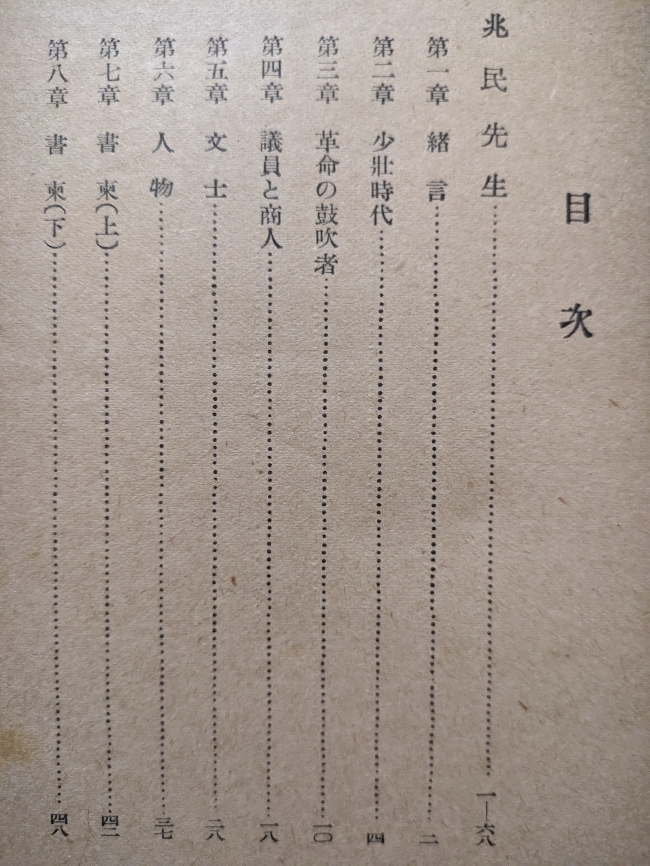 目次
兆民先生……一—六八
第一章 緒言……二
第二章 少壯時代……四
第三章 革命の鼓吹者……一〇
第四章 議員と商人……一八
第五章 文士……二八
第六章 人物……三七
第七章 書柬(上)……四二
第八章 書柬(下)……四八